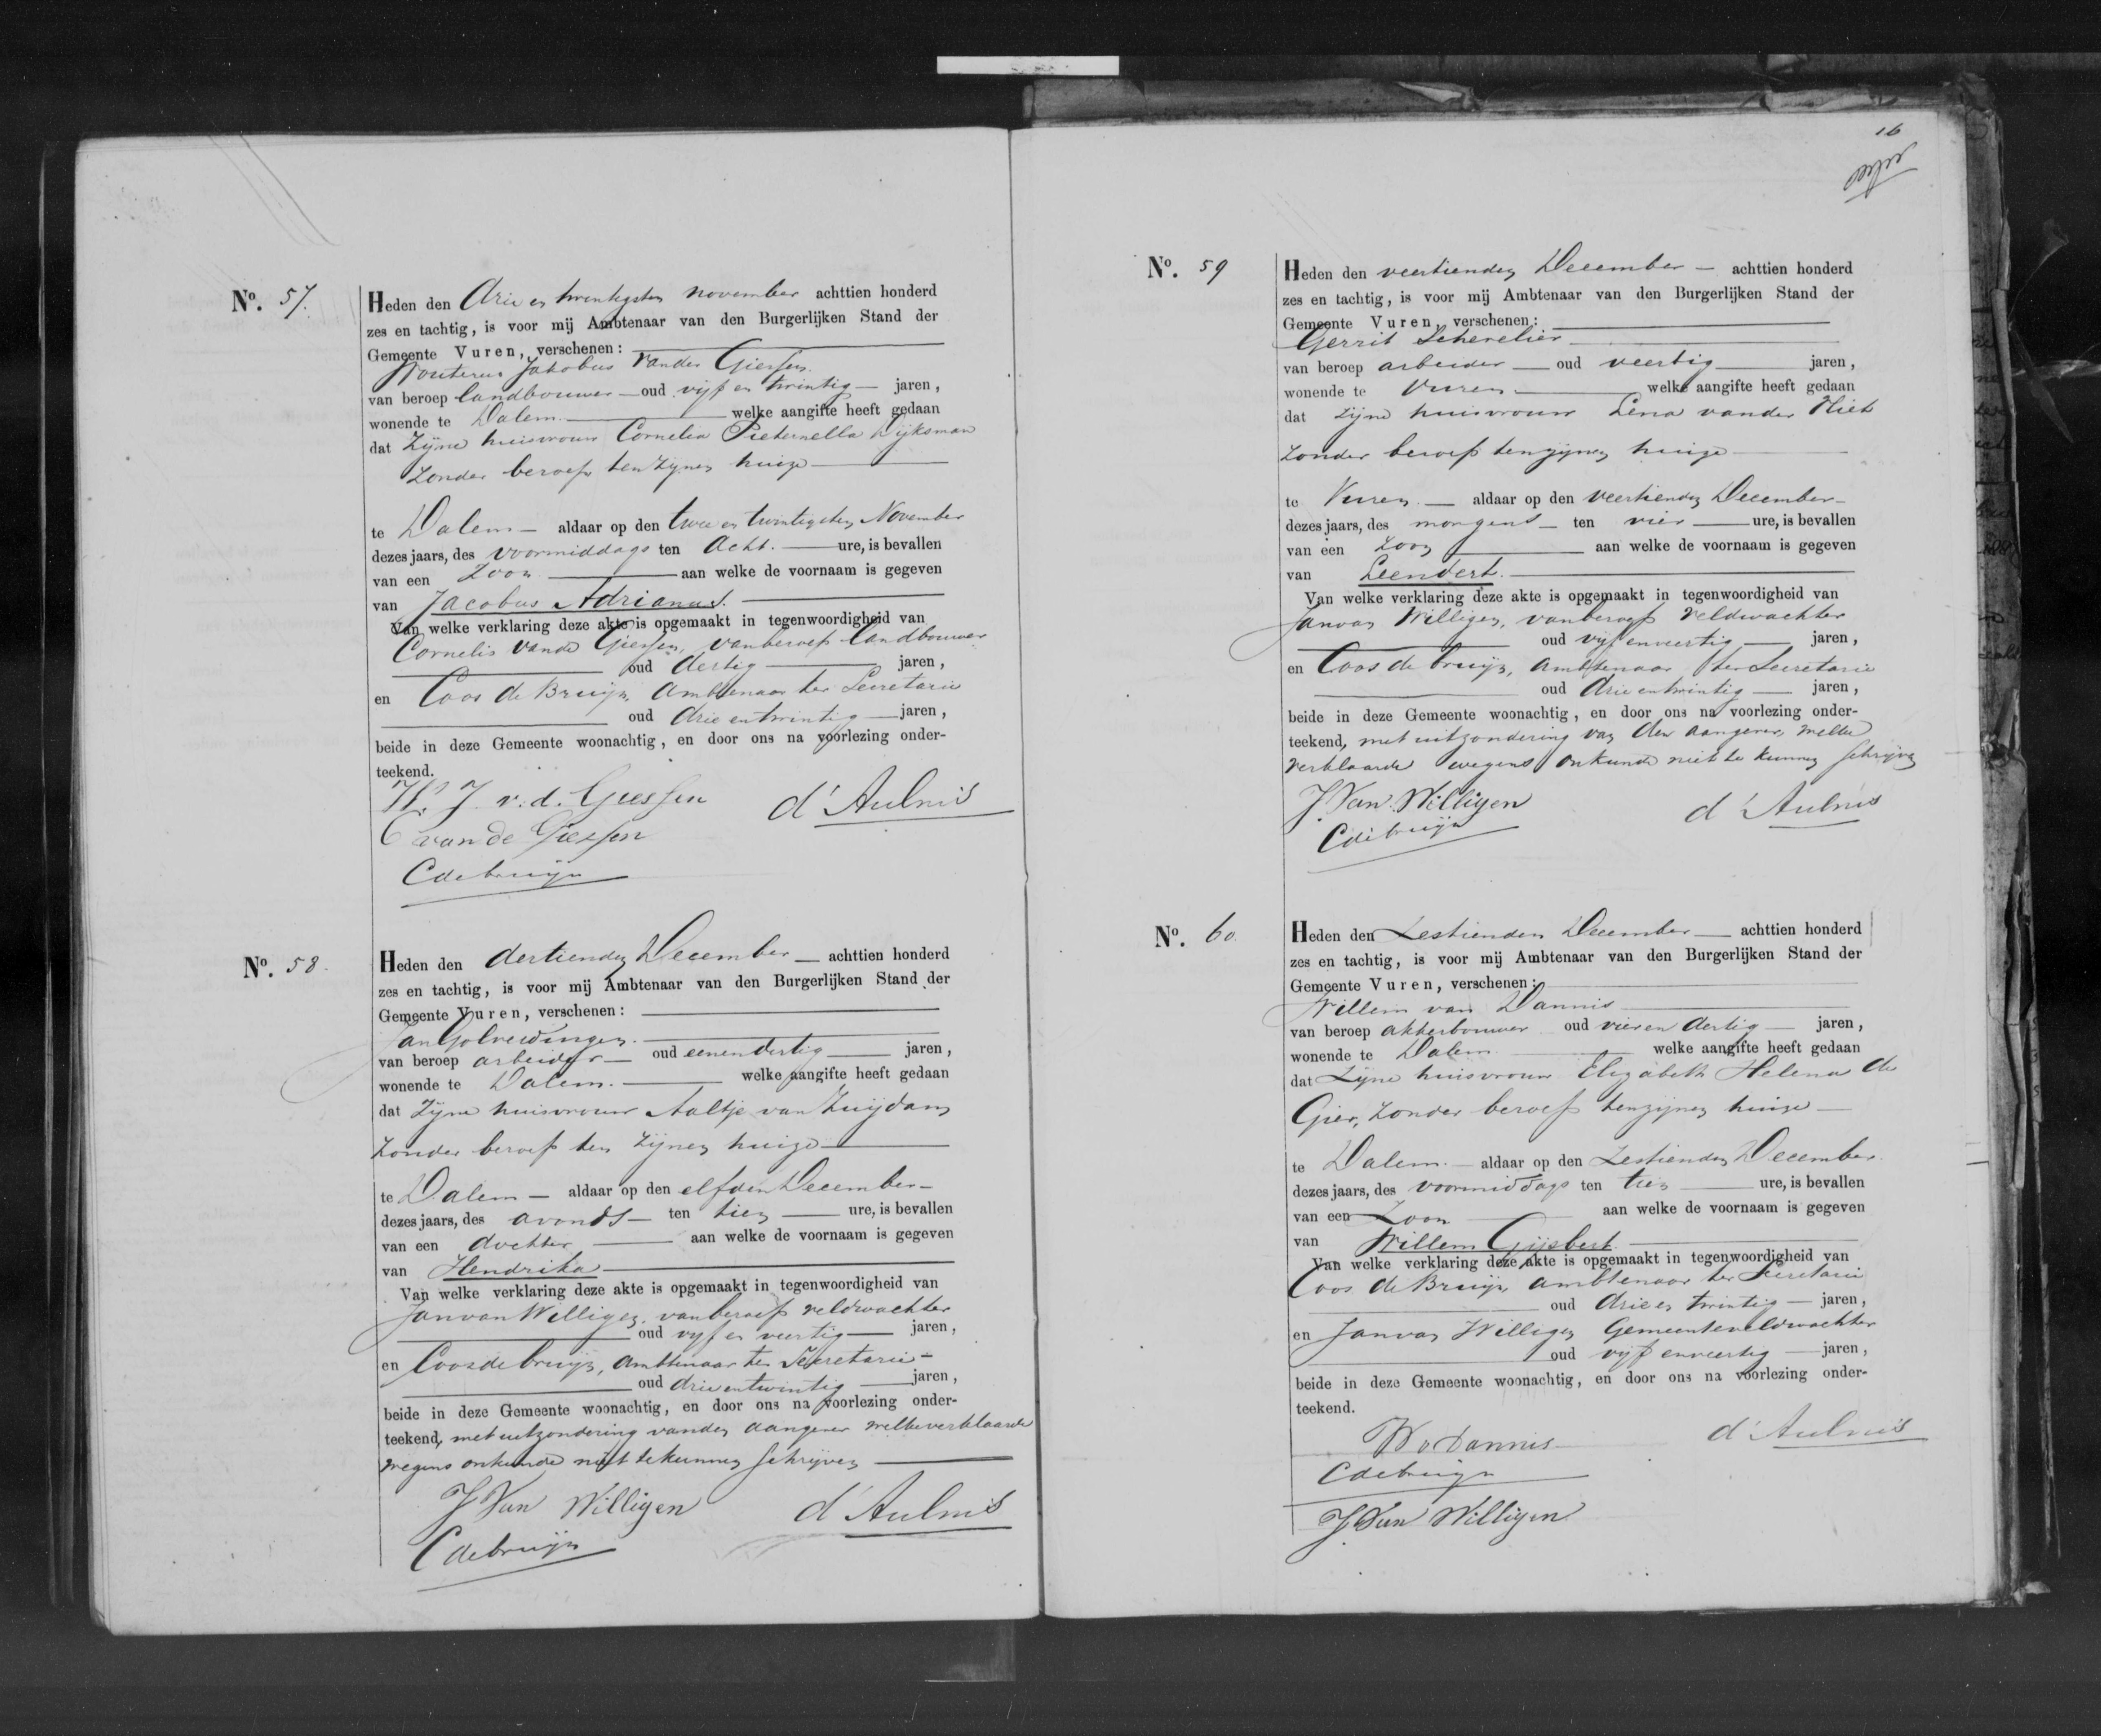 Nº. 57.
Heden den drie en twintigsten november achttien honderd
zes en tachtig, is voor mij Ambtenaar van den Burgerlijken Stand der
Gemeente Vuren, verschenen:
Wouterus Jakobus van der Giessen
van beroep landbouwer oud vijf en twintig jaren,
wonende te Dalem welke aangifte heeft gedaan
dat zijne huisvrouw Cornelia Pieternella Dijksman
zonder beroep ten zijnen huize
te Dalem aldaar op den twee en twintigsten November
dezes jaars, des voormiddags ten acht. ure, is bevallen
van een zoon aan welke de voornaam is gegeven
van Jacobus Adrianus.
Van welke verklaring deze akte is opgemaakt in tegenwoordigheid van
Cornelis van de Giessen, van beroep landbouwer
oud dertig jaren,
en Coos de Bruijn, Ambtenaar ter Secretarie
oud drie en twintig jaren,
beide in deze Gemeente woonachtig, en door ons na voorlezing onder-
teekend.
W. J. v. d. Giessen d'Aulnis
C van de Giessen
C de bruijn
Nº. 58.
Heden den dertienden December achttien honderd
zes en tachtig, is voor mij Ambtenaar van den Burgerlijken Stand der
Gemeente Vuren, verschenen:
Jan
van beroep arbeider oud een en dertig jaren,
wonende te Dalem. welke aangifte heeft gedaan
dat zijne huisvrouw Aaltje van Zuijdam
zonder beroep ten zijnen huize
te Dalem aldaar op den elfden December
dezes jaars, des avonds ten tien ure, is bevallen
van een dochter aan welke de voornaam is gegeven
van Hendrika
Van welke verklaring deze akte is opgemaakt in tegenwoordigheid van
Jan van Willigen, van beroep veldwachter
oud vijf en veertig jaren,
en Coos de bruijn, Ambtenaar ter Secretarie
oud drie en twintig jaren,
beide in deze Gemeente woonachtig, en door ons na voorlezing onder-
teekend, met uitzondering van den aangever welke verklaarde
wegens onkunde niet te kunnen schrijven
J Van Willigen d'Aulnis
C de bruijn
16
Nº. 59
Heden den veertienden December achttien honderd
zes en tachtig, is voor mij Ambtenaar van den Burgerlijken Stand der
Gemeente Vuren, verschenen:
Gerrit Scherelier
van beroep arbeider oud veertig jaren,
wonende te Vuren welke aangifte heeft gedaan
dat zijne huisvrouw Lena van der Vliet
zonder beroep ten zijnen huize
te Vuren aldaar op den veertienden December
dezes jaars, des morgens ten vier ure, is bevallen
van een zoon aan welke de voornaam is gegeven
van Leendert.
Van welke verklaring deze akte is opgemaakt in tegenwoordigheid van
Jan van Willigen, van beroep veldwachter
oud vijf en veertig jaren,
en Coos de bruijn, Ambtenaar ter Secretarie
oud drie en twintig jaren,
beide in deze Gemeente woonachtig, en door ons na voorlezing onder-
teekend, met uitzondering van den aangever, welke
verklaarde wegens onkunde niet te kunnen schrijven
J. Van Willigen d'Aulnis
C de bruijn
Nº. 60
Heden den Zestienden December achttien honderd
zes en tachtig, is voor mij Ambtenaar van den Burgerlijken Stand der
Gemeente Vuren, verschenen:
Willem van Dannis
van beroep akkerbouwer oud vier en dertig jaren,
wonende te Dalem welke aangifte heeft gedaan
dat zijne huisvrouw Elizabeth Helena de
Gier, zonder beroep ten zijnen huize
te Dalem. aldaar op den Zestienden December
dezes jaars, des voormiddags ten tien ure, is bevallen
van een zoon aan welke de voornaam is gegeven
van Willem Gijsbert
Van welke verklaring deze akte is opgemaakt in tegenwoordigheid van
Coos de Bruijn, ambtenaar ter Secretarie
oud drie en twintig jaren,
en Jan van Willigen Gemeenteveldwachter
oud vijf en veertig jaren,
beide in deze Gemeente woonachtig, en door ons na voorlezing onder-
teekend.
W v Dannis d'Aulnis
C de bruijn
J Van Willigen